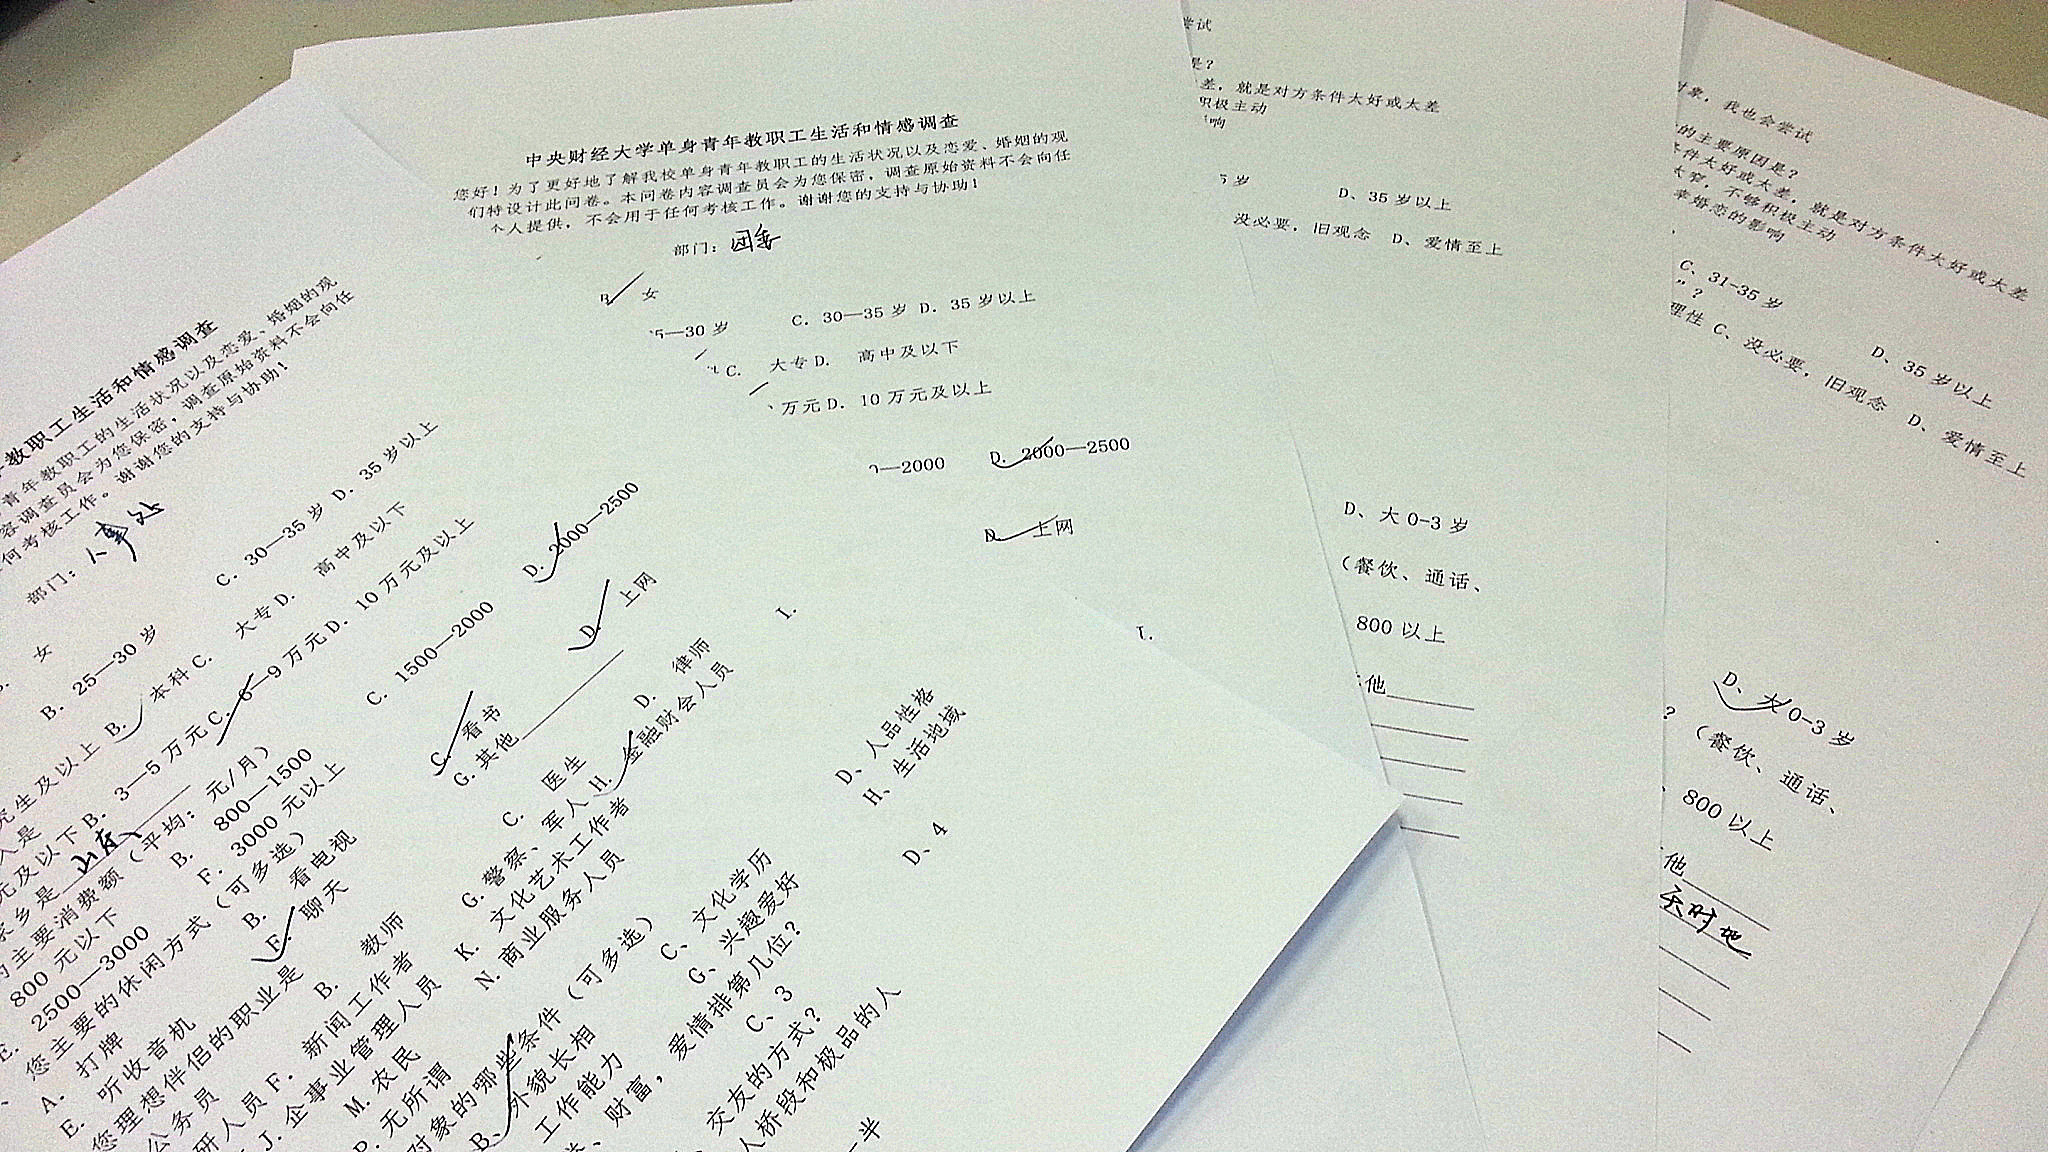 中央财经大学单身青年教职工生活和情感调查
您好！为了更好地了解我校单身青年教职工的生活状况以及恋爱、婚姻的观
们特设计此问卷。本问卷内容调查员会为您保密，调查原始资料不会向任
个人提供，不会用于任何考核工作。谢谢您的支持与协助！
部门：团委
女
5—30 岁 C. 30—35 岁 D. 35 岁以上
C. 大专 D. 高中及以下
万元 D. 10 万元及以上
—2000 D. 2000—2500
D. 上网
I.
教职工生活和情感调查
青年教职工的生活状况以及恋爱、婚姻的观
容调查员会为您保密，调查原始资料不会向任
何考核工作。谢谢您的支持与协助！
部门：人事处
女
B. 25—30 岁 C. 30—35 岁 D. 35 岁以上
究生及以上 B. 本科 C. 大专 D. 高中及以下
元及以下 B. 3—5 万元 C. 6—9 万元 D. 10 万元及以上
家乡是 山东
的主要消费额（平均： 元/月）
800 元以下 B. 800—1500 C. 1500—2000 D. 2000—2500
E. 2500—3000 F. 3000 元以上
您主要的休闲方式（可多选）
A. 打牌 B. 看电视 C. 看书 D. 上网
E. 听收音机 F. 聊天 G. 其他
您理想伴侣的职业是
公务员 B. 教师 C. 医生 D. 律师
研人员 F. 新闻工作者 G. 警察、军人 H. 金融财会人员 I.
J. 企事业管理人员 K. 文化艺术工作者
M. 农民 N. 商业服务人员
P. 无所谓
对象的哪些条件（可多选）
B、外貌长相 C、文化学历 D、人品性格
工作能力 G、兴趣爱好 H、生活地域
财富，爱情排第几位？
C、3 D、4
交友的方式？
人桥段和极品的人
一半
尝试
是？
差，就是对方条件太好或太差
积极主动
响
5 岁 D、35 岁以上
没必要，旧观念 D、爱情至上
D、大 0-3 岁
（餐饮、通话、
800 以上
他
对象，我也会尝试
的主要原因是？
条件太好或太差，就是对方条件太好或太差
太窄，不够积极主动
率婚恋的影响
C、31-35 岁 D、35 岁以上
”？
理性 C、没必要，旧观念 D、爱情至上
D、大 0-3 岁
？（餐饮、通话、
800 以上
他
天时地